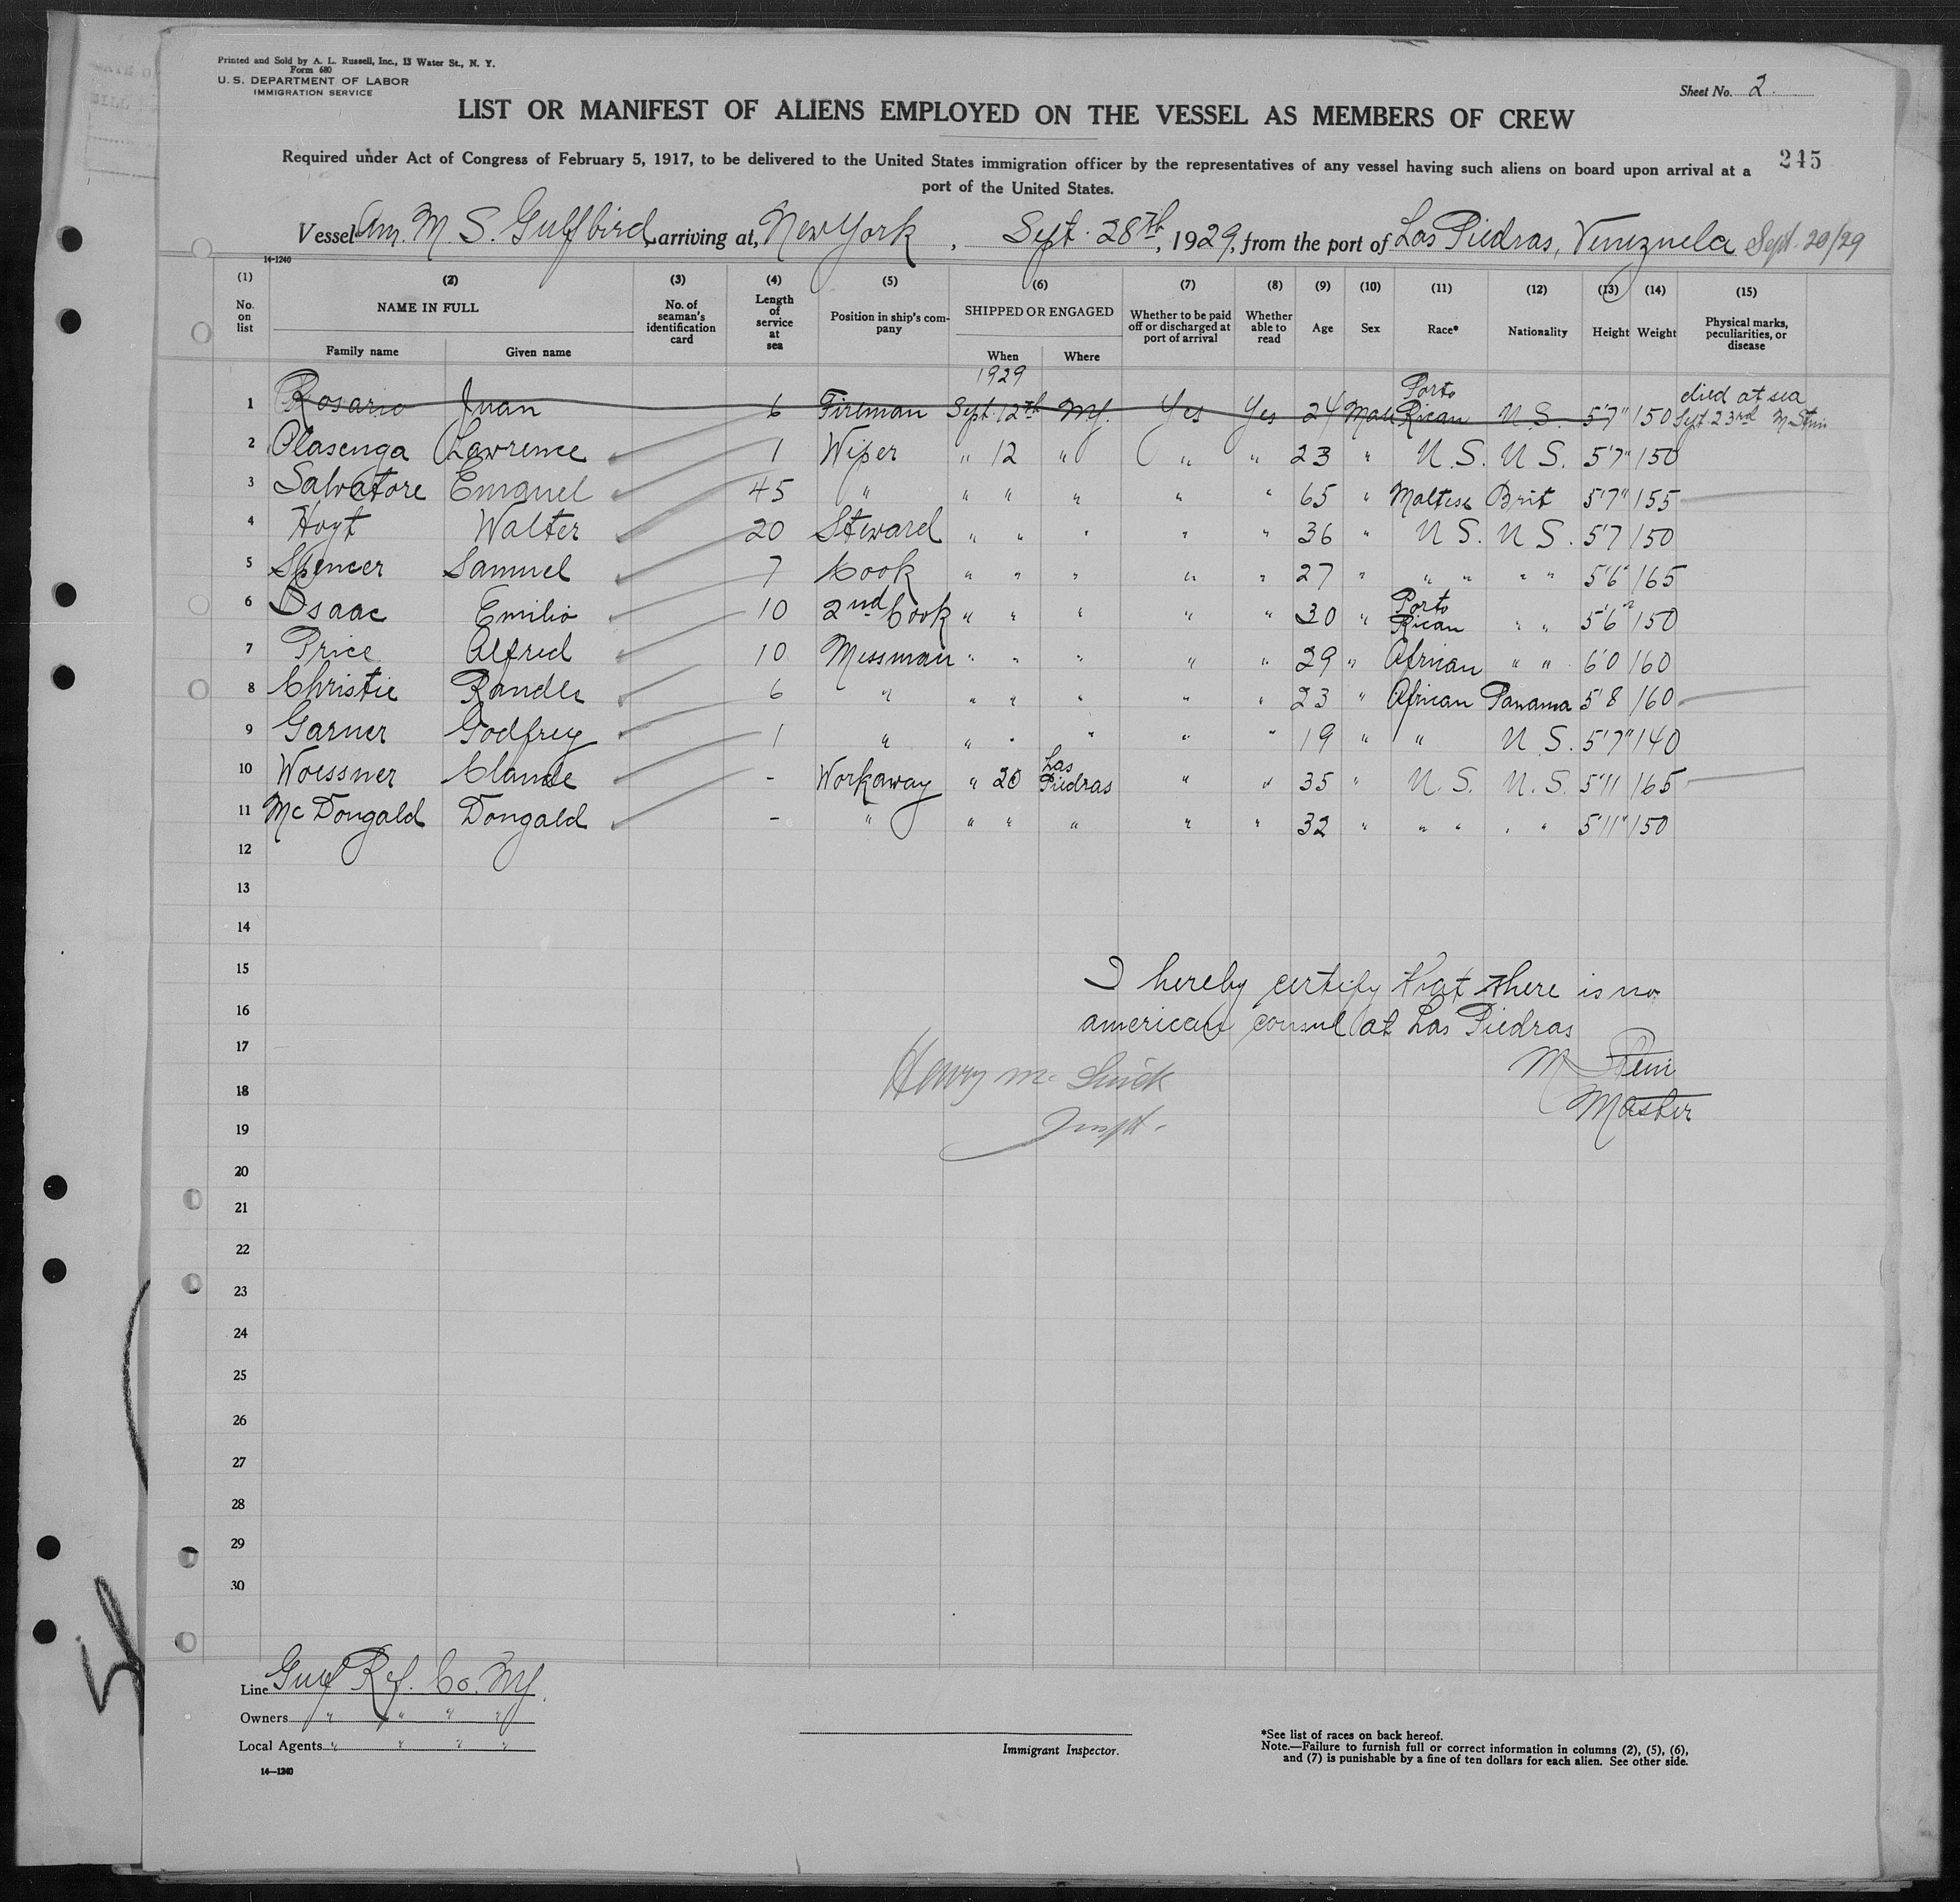 Printed and Sold by A. L. Russell, Inc., 13 Water St., N. Y.
Form 680
U. S. DEPARTMENT OF LABOR
IMMIGRATION SERVICE
Sheet No. 2
LIST OR MANIFEST OF ALIENS EMPLOYED ON THE VESSEL AS MEMBERS OF CREW
245
Required under Act of Congress of February 5, 1917, to be delivered to the United States immigration officer by the representatives of any vessel having such aliens on board upon arrival at a
port of the United States.
Vessel Am. M. S. Gulfbird, arriving at, New York, Sept. 28th, 1929, from the port of Las Piedras, Venezuela Sept. 20/29
14-1240
(1) (2) (3) (4) (5) (6) (7) (8) (9) (10) (11) (12) (13) (14) (15)
No. on list NAME IN FULL Family name Given name No. of seaman's identification card Length of service at sea Position in ship's company SHIPPED OR ENGAGED When Where Whether to be paid off or discharged at port of arrival Whether able to read Age Sex Race* Nationality Height Weight Physical marks, peculiarities, or disease
1929
1 Rosario Juan 6 Fireman Sept. 12th NY. Yes Yes 24 Male Porto Rican U S. 5'7" 150 died at sea Sept. 23rd M Stein
2 Olasenga Lawrence 1 Wiper " 12 " " " 23 " U.S. U S. 5'7" 150
3 Salvatore Emanuel 45 " " " " " " 65 " Maltese Brit 5'7" 155
4 Hoyt Walter 20 Steward " " " " " 36 " U S. U S. 5'7 150
5 Spencer Samuel 7 Cook " " " " " 27 " " " " " 5'6" 165
6 Isaac Emilio 10 2nd Cook " " " " " 30 " Porto Rican " " 5'6" 150
7 Price Alfred 10 Messman " " " " " 29 " African " " 6'0 160
8 Christie Randle 6 " " " " " " 23 " African Panama 5'8 160
9 Garner Godfrey 1 " " " " " " 19 " " U S. 5'7" 140
10 Woessner Claude - Workaway " 20 Las Piedras " " 35 " U. S. U. S. 5'11 165
11 Mc Dongald Dongald - " " " " " " 32 " " " " " 5'11" 150
12
13
14
15
I hereby certify that there is no
16
american consul at Las Piedras
17
M Stein
Henry Mc
18
Master
19
Inspt.
20
21
22
23
24
25
26
27
28
29
30
Line Gulf Ref. Co. NY.
Owners " " " "
Local Agents " " " "
14—1240
Immigrant Inspector.
*See list of races on back hereof.
Note.—Failure to furnish full or correct information in columns (2), (5), (6),
and (7) is punishable by a fine of ten dollars for each alien. See other side.